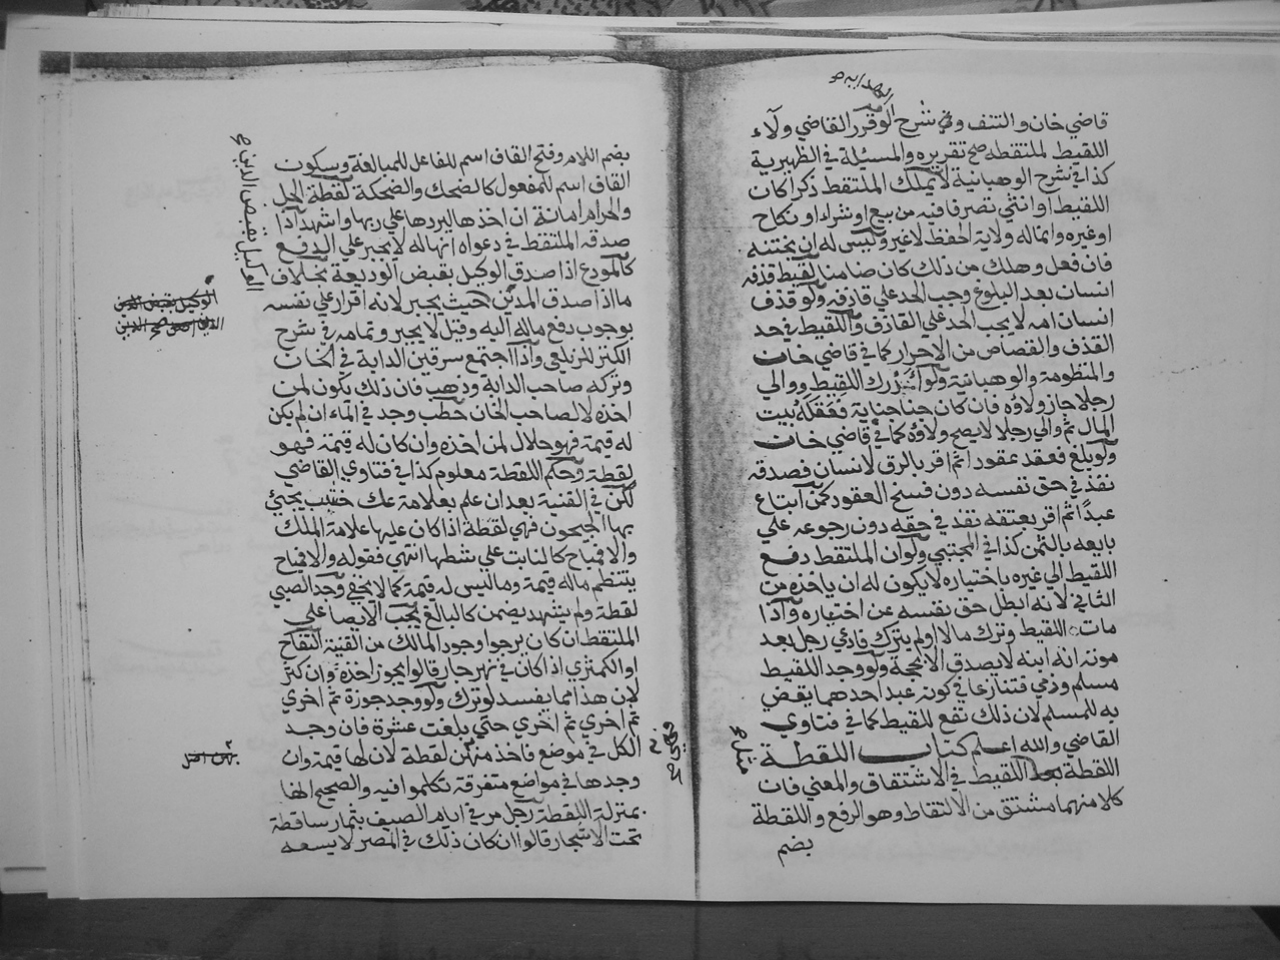 الهدايه صح
قاضي خان والنتف وفي شرح الوقرر القاضي ولآء
اللقيط لملتقطه صح تقريره والمسئلة في الظهيرية
كذا في شرح الوهبانية لا يملك الملتقط ذكرا كان
اللقيط او انثي تصرفا فيه من بيع او شراء او نكاح
او غيره وانما له ولاية الحفظ لا غير وليس له ان يختنه
فان فعل وهلك من ذلك كان ضامنا لقيط قذفه
انسان بعد البلوغ وجب الحد علي قاذفه ولو قذف
انسان امه لا يجب الحد علي القاذف واللقيط في حد
القذف والقصاص من الاحرار كما في قاضي خان
والمنظومة والوهبانية ولو ادرك اللقيط ووالي
رجلا جاز ولاؤه فان كان جنا جناية فعقله بيت
المال ثم والي رجلا لا يصح ولاؤه كما في قاضي خان
ولو بلغ فعقد عقودا ثم اقر بالرق لانسان فصدقه
نفذ في حق نفسه دون فسخ العقود كمن ابتاع
عبدا ثم اقر بعتقه نفذ في حقه دون رجوعه علي
بايعه بالثمن كذا في المجتبي ولو ان الملتقط دفع
اللقيط الي غيره باختياره لا يكون له ان ياخذه من
الثاني لانه ابطل حق نفسه عن اختياره واذا
مات اللقيط وترك مالا او لم يترك فادعي رجل بعد
موته انه ابنه لا يصدق الا بحجة ولو وجد اللقيط
مسلم وذمي فتنازعا في كونه عبد احدهما يقضي
به للمسلم لان ذلك نفع للقيط كما في فتاوي
القاضي والله اعلم كتاب اللقطة
اللقطة اللقيط في الاشتقاق والمعني فان
كلا منهما مشتق من الالتقاط وهو الرفع واللقطة
بضم
مثل صح
بضم اللام وفتح القاف اسم للفاعل للمبالغة وسكون
القاف اسم للمفعول كالضحك والضحكة لقطة الحل
والحرام امانة ان اخذها ليردها علي ربها واشهد اذا
صدقه الملتقط في دعواه انها له لا يجبر علي الدفع
كالمودع اذا صدق الوكيل بقبض الوديعة بخلاف
ما اذا صدق المدين حيث يجبر لانه اقرار علي نفسه
بوجوب دفع ماله اليه وقيل لا يجبر وتمامه في شرح
الكنز للزيلعي واذا اجتمع سرقين الدابة في الخان
وتركه صاحب الدابة وذهب فان ذلك يكون لمن
اخذه لا لصاحب الخان حطب وجد في الماء ان لم يكن
له قيمة فهو حلال لمن اخذه وان كان له قيمة فهو
لقطة وحكم اللقطة معلوم كذا في فتاوي القاضي
لكن في القنية بعد ان علم بعلامة عك خشب يجيئ
بها الجيحون فهي لقطة اذا كان عليها علامة الملك
والا فمباح كالنابت علي شطها انتهي فقوله والا فمباح
ينتظم ماله قيمة وما ليس له قيمة كما لا يخفي وجد الصبي
لقطة ولم يشهد يضمن كالبالغ يجب الايصا علي
الملتقط ان كان يرجو وجود المالك من القنية التفاح
او الكمثري اذا كان في نهر جار قالوا يجوز اخذه وان كثر
لان هذا مما يفسد لو ترك ولو وجد جوزة ثم اخري
ثم اخري ثم اخري حتي بلغت عشرة فان وجد
الكل في موضع فاخذ منهن لقطة لان لها قيمة وان
وجدها في مواضع متفرقة تكلموا فيه والصحيح انها
بمنزلة اللقطة رجل مر في ايام الصيف بثمار ساقطة
تحت الاشجار قالوا ان كان ذلك في المصر لا يسعه
الوكيل بقبض الدين صح
الوكيل بقبض الدين